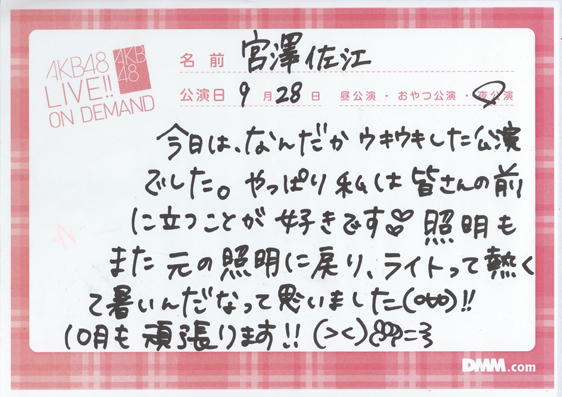 AKB48
LIVE!!
ON DEMAND
AKB
48
名前 宮澤佐江
公演日 9月28日 昼公演・おやつ公演・夜公演
今日は、なんだかウキウキした公演
でした。やっぱり私は皆さんの前
に立つことが好きです♡照明も
また元の照明に戻り、ライトって熱く
て暑いんだなって思いました!!
10月も頑張ります!!(><)
DMM.com